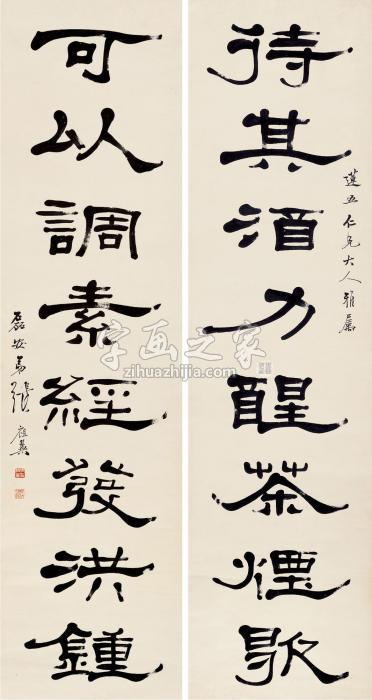 蓮五仁兄大人雅屬
待其酒力醒茶煙歇
可以調素經發洪鍾
磊安弟張祖翼
字画之家
zihuazhijia.com